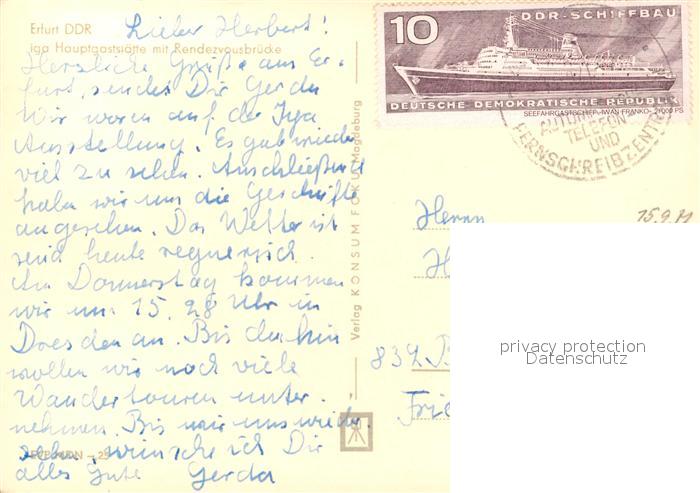 Erfurt DDR
iga Hauptgaststätte mit Rendezvousbrücke
Lieber Herbert!
Herzliche Grüße aus Er-
furt, sendet Dir Gerda
Wir waren auf der Iga
Ausstellung. Es gab wieder
viel zu sehen. Anschließend
habn wir uns die Geschäfte
angesehen. Das Wetter ist
seid heute regnerisch.
Am Donnerstag kommen
wir um 15.28 Uhr in
Dresden an. Bis dahin
wollen wir noch viele
Wandertouren unter-
nehmen. Bis wir uns wieder
sehn, wünsche ich Dir
alles Gute Gerda
Verlag KONSUM FOKU Magdeburg
10 DDR-SCHIFFBAU
DEUTSCHE DEMOKRATISCHE REPUBLIK
SEEFAHRGASTSCHIFF „IWAN FRANKO“ 21000 PS
TELEFON-
UND
FERNSCHREIBZENT
15.9.71
Herrn
H
839
Frie
privacy protection
Datenschutz